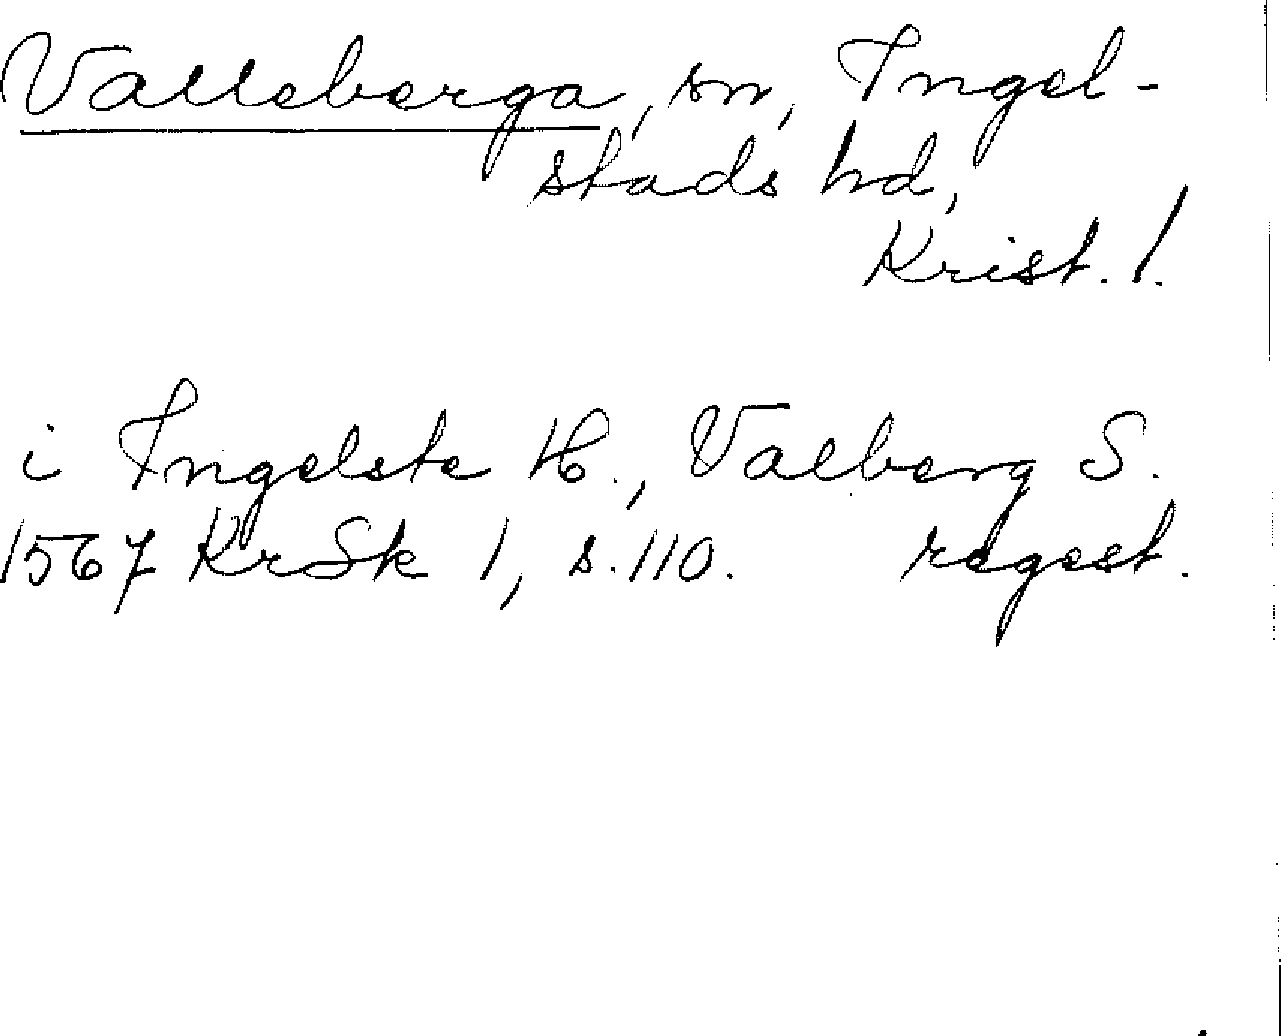 Valleberga, sn, Ingel-
stads hd,
Krist. l.
i Ingelste H., Valberg S.
1567 KrSk 1, s. 110. regest.